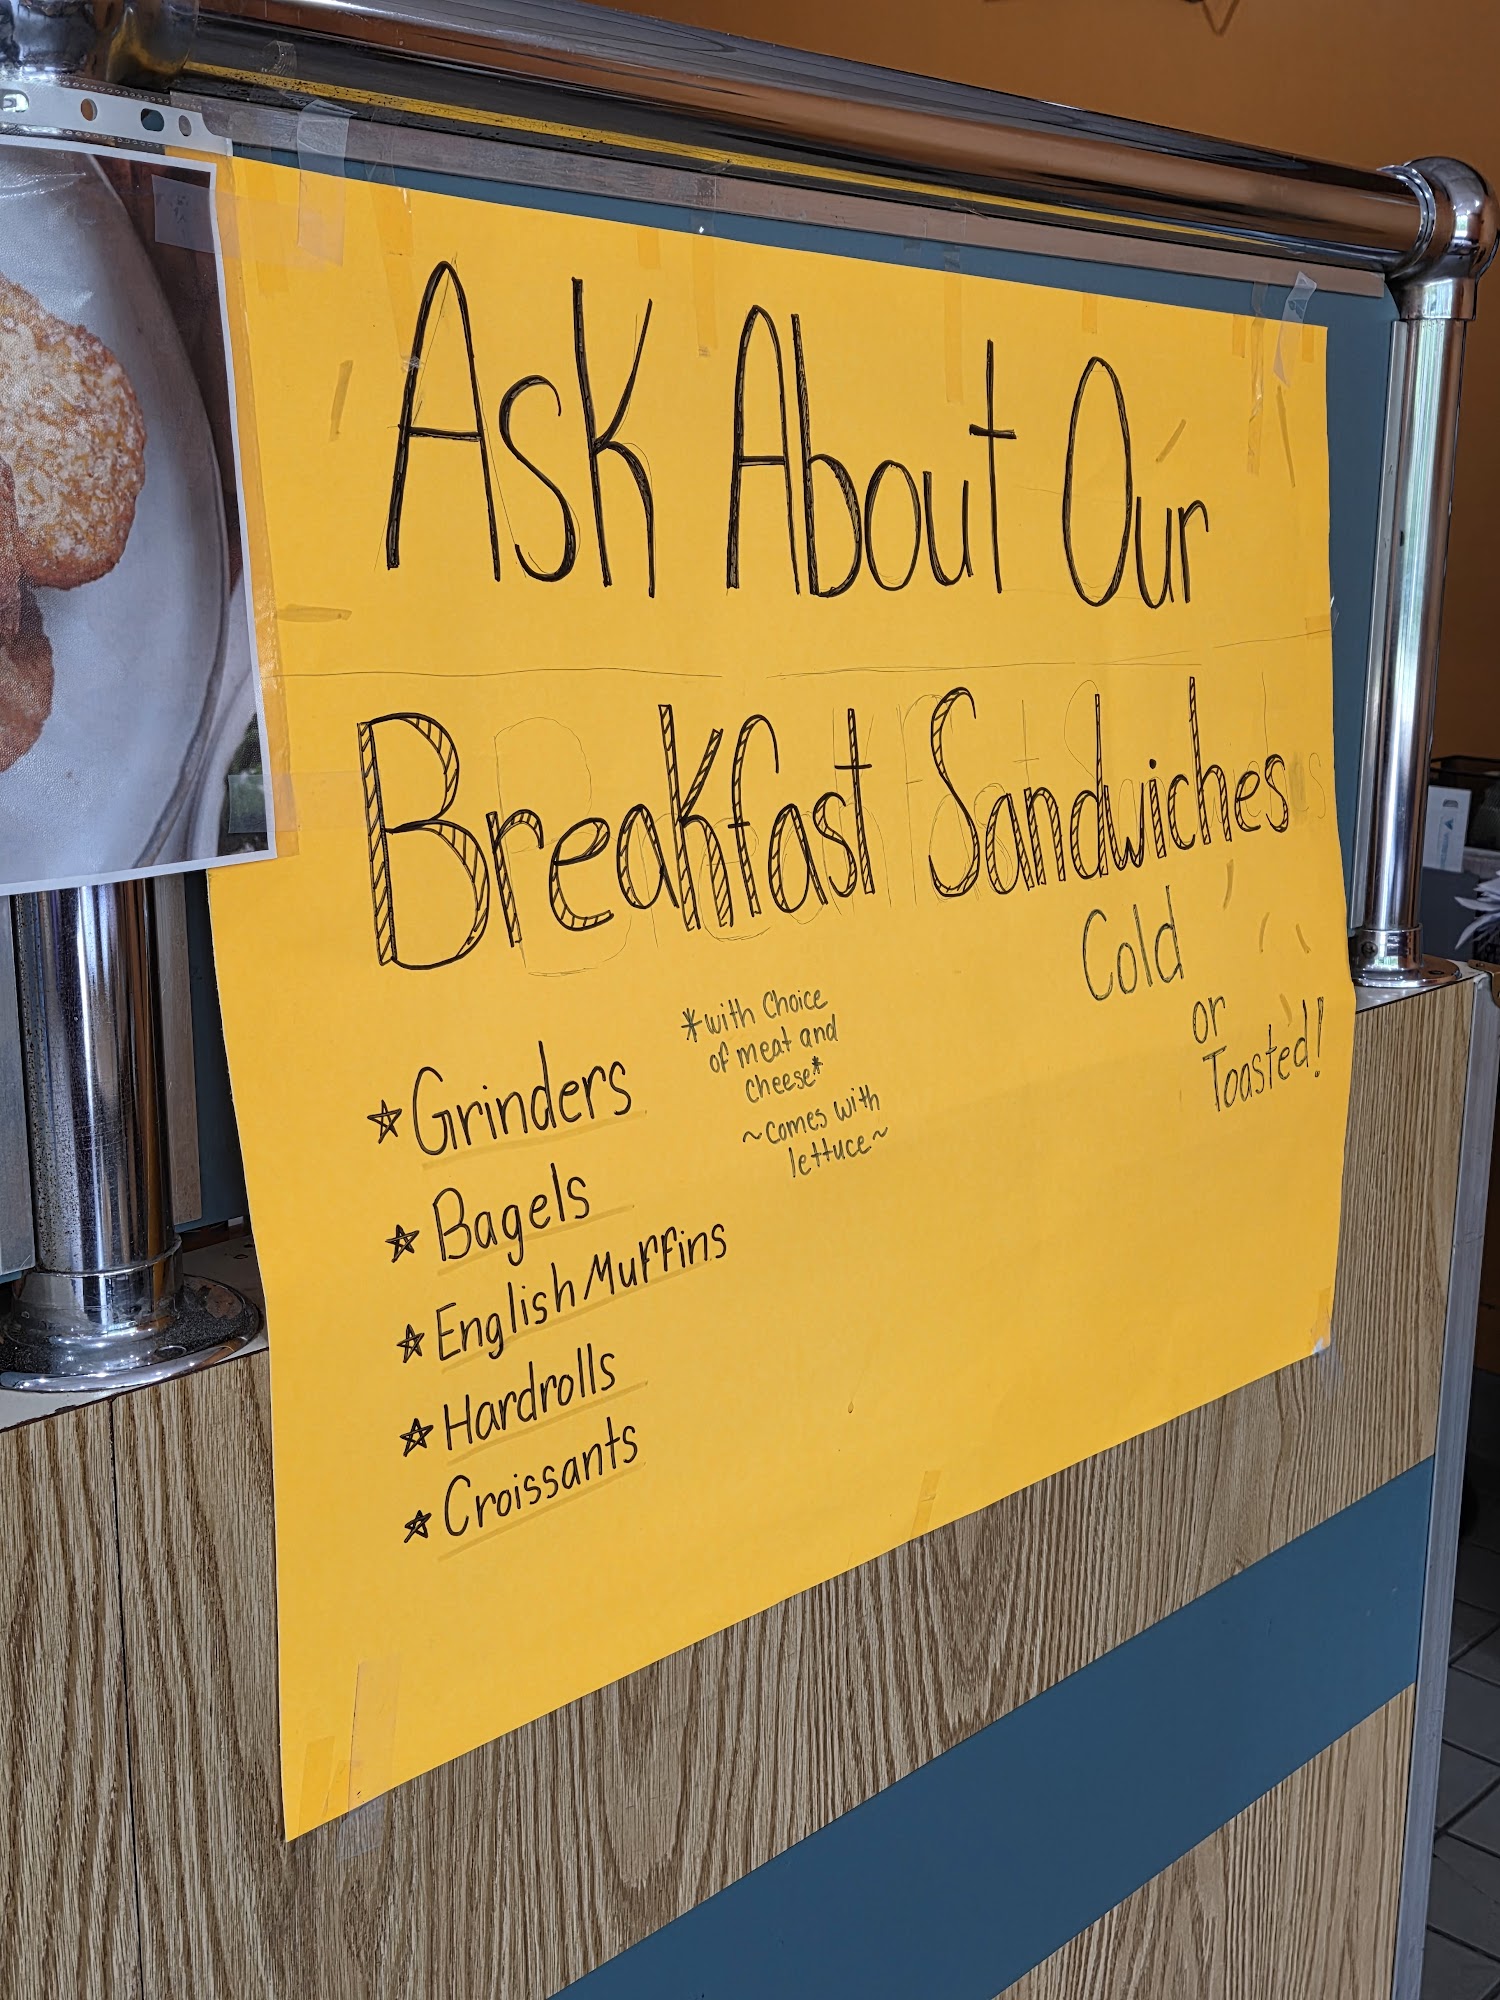 Ask About Our
Breakfast Sandwiches
Cold
or
Toasted!
*with Choice
of meat and
cheese*
~comes with
lettuce~
☆ Grinders
☆ Bagels
☆ English Muffins
☆ Hardrolls
☆ Croissants